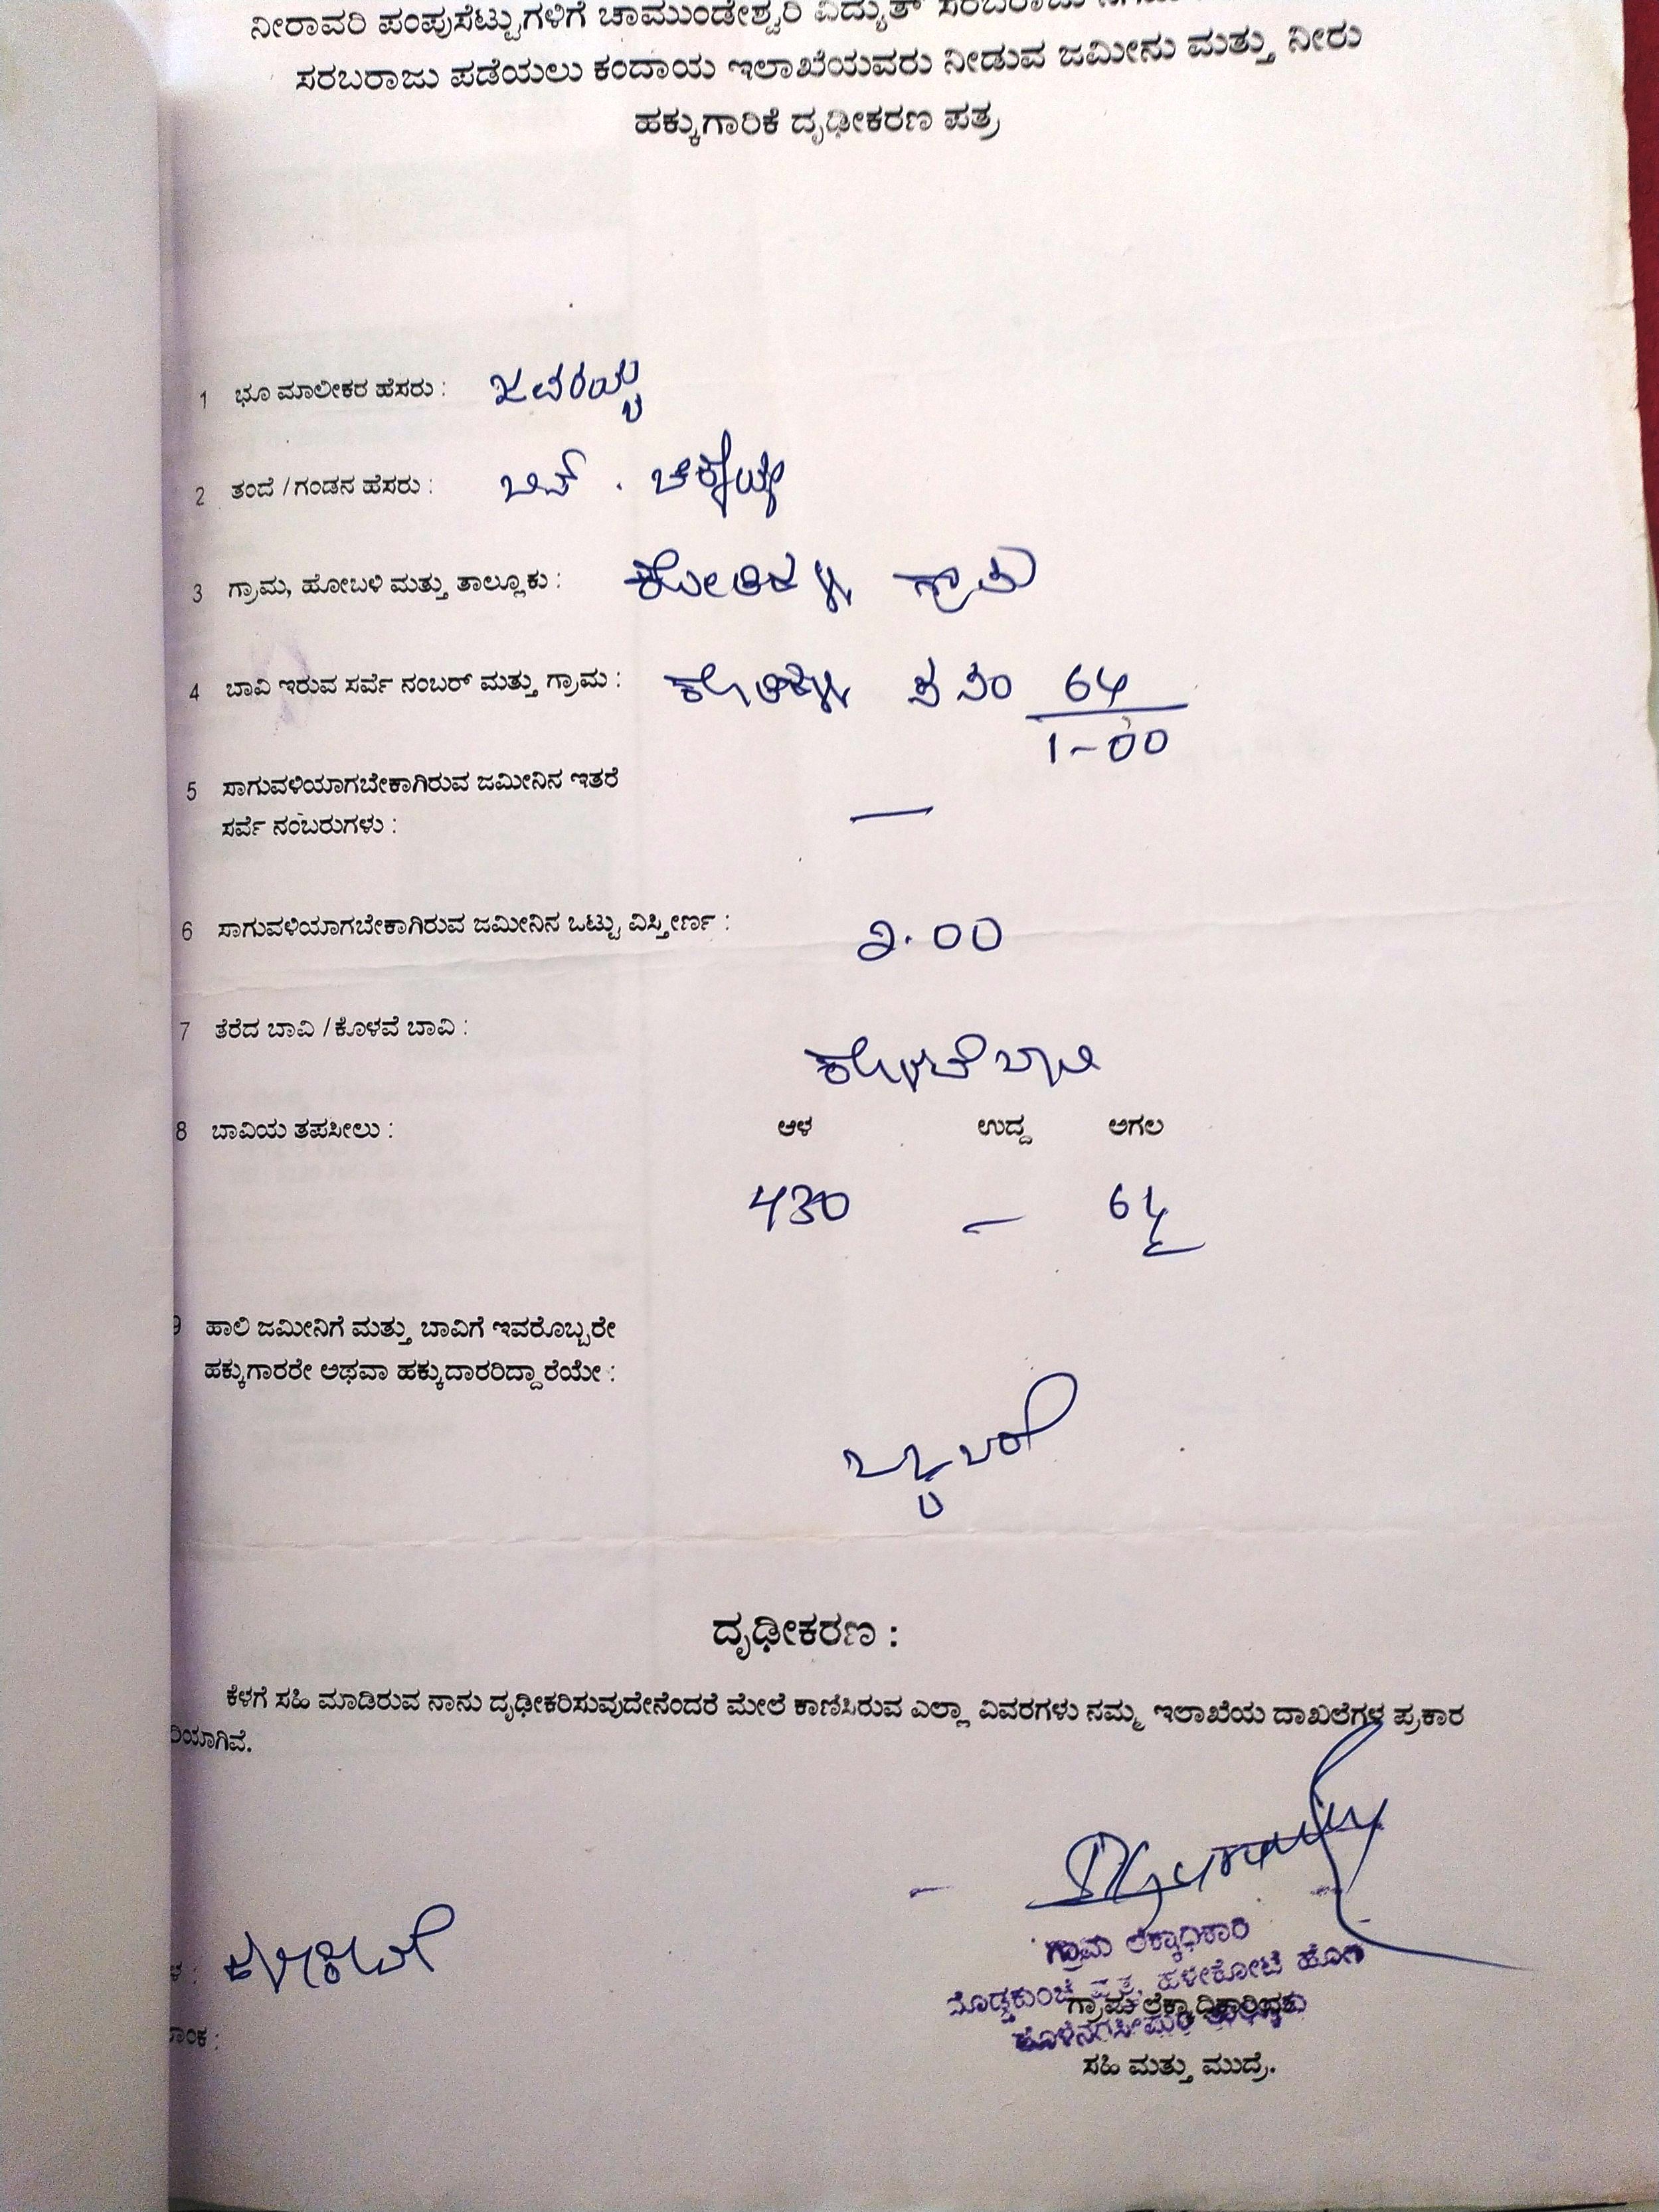 ನೀರಾವರಿ ಪಂಪುಸೆಟ್ಟುಗಳಿಗೆ ಚಾಮುಂಡೇಶ್ವರಿ ವಿದ್ಯುತ್ ಸರಬರಾಜು
ಸರಬರಾಜು ಪಡೆಯಲು ಕಂದಾಯ ಇಲಾಖೆಯವರು ನೀಡುವ ಜಮೀನು ಮತ್ತು ನೀರು
ಹಕ್ಕುಗಾರಿಕೆ ದೃಢೀಕರಣ ಪತ್ರ
1 ಭೂ ಮಾಲೀಕರ ಹೆಸರು : ಜವರಯ್ಯ
2 ತಂದೆ / ಗಂಡನ ಹೆಸರು : ಬಿನ್ .
3 ಗ್ರಾಮ, ಹೋಬಳಿ ಮತ್ತು ತಾಲ್ಲೂಕು : ಗ್ರಾಮ
4 ಬಾವಿ ಇರುವ ಸರ್ವೆ ನಂಬರ್ ಮತ್ತು ಗ್ರಾಮ : ಸ ನಂ 64
1-00
5 ಸಾಗುವಳಿಯಾಗಬೇಕಾಗಿರುವ ಜಮೀನಿನ ಇತರೆ
ಸರ್ವೆ ನಂಬರುಗಳು : —
6 ಸಾಗುವಳಿಯಾಗಬೇಕಾಗಿರುವ ಜಮೀನಿನ ಒಟ್ಟು ವಿಸ್ತೀರ್ಣ : ೨.00
7 ತೆರೆದ ಬಾವಿ / ಕೊಳವೆ ಬಾವಿ :
ಕೊಳವೆ ಬಾವಿ
8 ಬಾವಿಯ ತಪಸೀಲು : ಆಳ ಉದ್ದ ಅಗಲ
430 — 6½
9 ಹಾಲಿ ಜಮೀನಿಗೆ ಮತ್ತು ಬಾವಿಗೆ ಇವರೊಬ್ಬರೇ
ಹಕ್ಕುಗಾರರೇ ಅಥವಾ ಹಕ್ಕುದಾರರಿದ್ದಾರೆಯೇ :
ಒಬ್ಬರೇ
ದೃಢೀಕರಣ :
ಕೆಳಗೆ ಸಹಿ ಮಾಡಿರುವ ನಾನು ದೃಢೀಕರಿಸುವುದೇನೆಂದರೆ ಮೇಲೆ ಕಾಣಿಸಿರುವ ಎಲ್ಲಾ ವಿವರಗಳು ನಮ್ಮ ಇಲಾಖೆಯ ದಾಖಲೆಗಳ ಪ್ರಕಾರ
ರಿಯಾಗಿವೆ.
ಗ್ರಾಮ ಲೆಕ್ಕಾಧಿಕಾರಿ
ದೊಡ್ಡಕುಂಚೆ ವೃತ್ತ, ಹಳೇಕೋಟೆ ಹೋಬಳಿ
ಗ್ರಾಮ ಲೆಕ್ಕಾಧಿಕಾರಿಯವರ
ಹೊಳೆನರಸೀಪುರ ತಾಲ್ಲೂಕು
ಳ :
ಾಂಕ :
ಸಹಿ ಮತ್ತು ಮುದ್ರೆ.